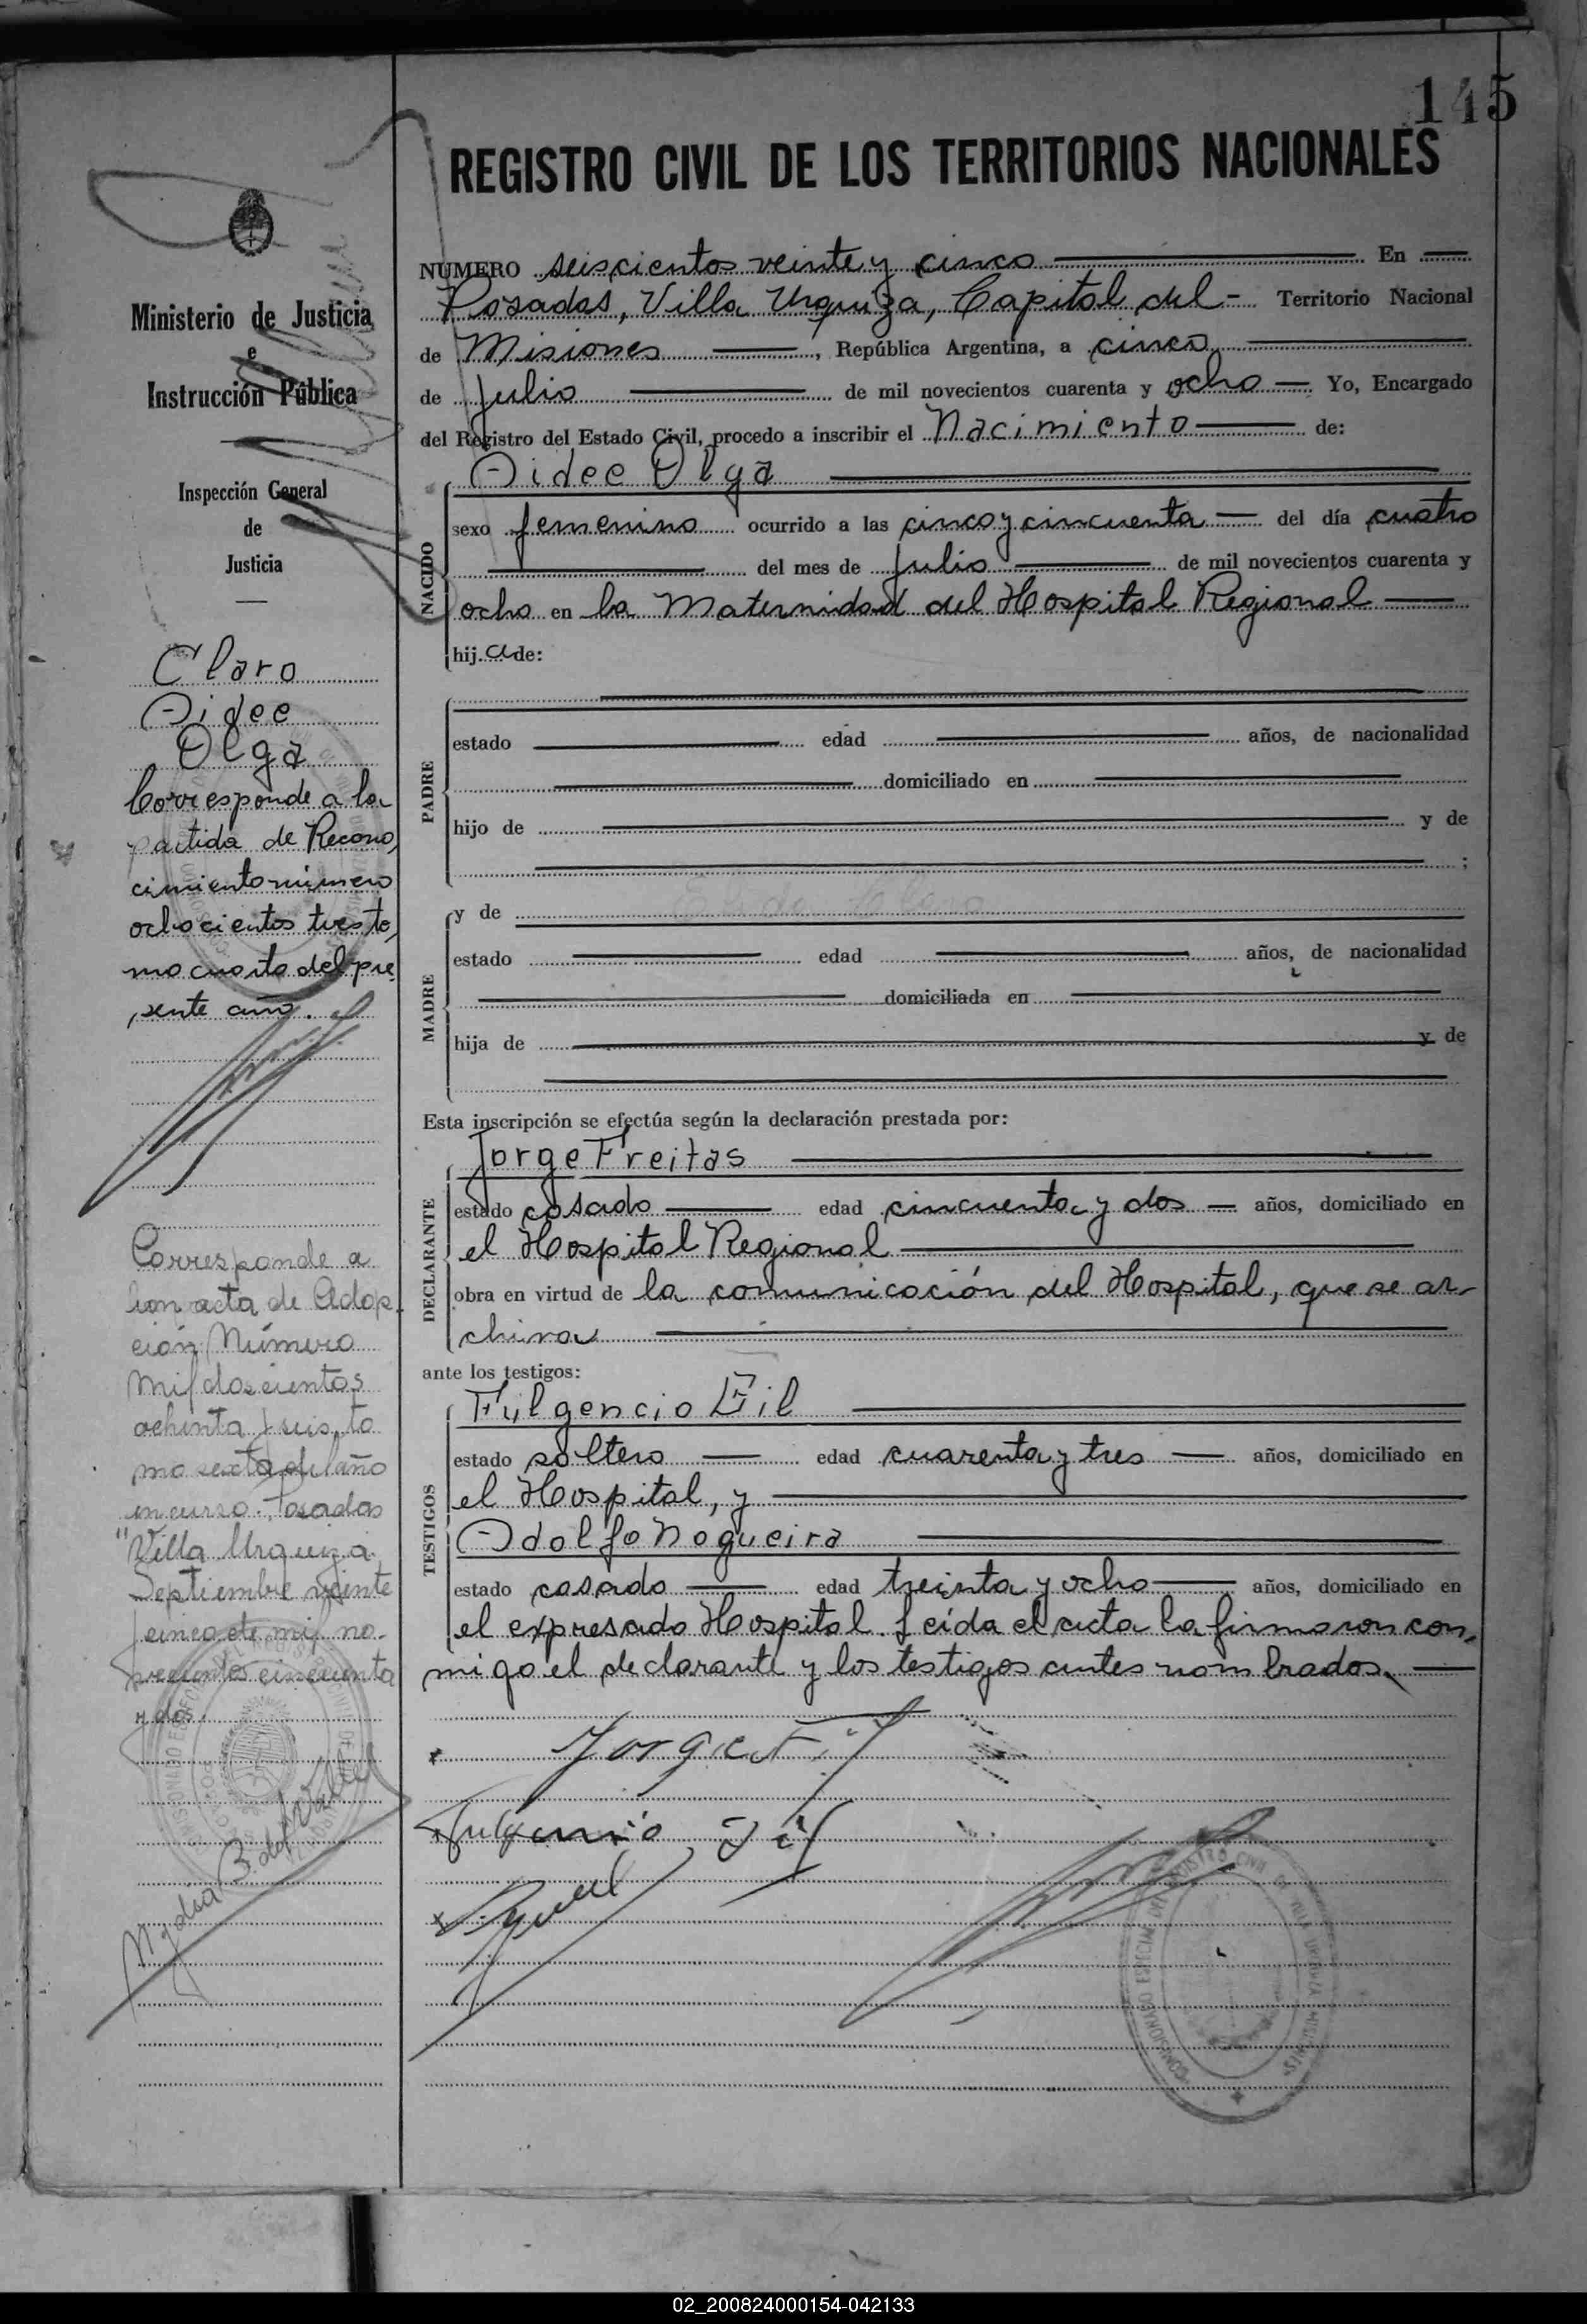 145
REGISTRO CIVIL DE LOS TERRITORIOS NACIONALES
Ministerio de Justicia
e
Instrucción Pública
Inspección General
de
Justicia
Claro
Aidee
Olga
Corresponde a la
partida de Recono,
cimiento número
ochocientos tres to,
mo cuarto del pre,
,sente año.
Corresponde a
acta de Adop-
ción Número
Mil doscientos
ochenta y seis, to
mo sexto del año
en curso.- Posadas
"Villa Urquiza
Septiembre veinte
y cinco de mil no-
vecientos cincuenta
y dos.
NUMERO seiscientos veinte y cinco En
Posadas, Villa Urquiza, Capital del - Territorio Nacional
de Misiones, República Argentina, a cinco
de Julio de mil novecientos cuarenta y ocho Yo, Encargado
del Registro del Estado Civil, procedo a inscribir el Nacimiento de:
NACIDO
Aidee Olga
sexo femenino ocurrido a las cinco y cincuenta del día cuatro
del mes de Julio de mil novecientos cuarenta y
ocho en la Maternidad del Hospital Regional
hij.a de:
PADRE
estado edad años, de nacionalidad
domiciliado en
hijo de y de
;
MADRE
y de
estado edad años, de nacionalidad
domiciliada en
hija de y de
Esta inscripción se efectúa según la declaración prestada por:
DECLARANTE
Jorge Freitas
estado casado edad cincuenta y dos años, domiciliado en
el Hospital Regional
obra en virtud de la comunicación del Hospital, que se ar-
chiva
ante los testigos:
TESTIGOS
Fulgencio Gil
estado soltero edad cuarenta y tres años, domiciliado en
el Hospital, y
Adolfo Nogueira
estado casado edad treinta y ocho años, domiciliado en
el expresado Hospital. Leída el acta la firmaron con,
migo el declarante y los testigos antes nombrados.
Fulgencio Gil
02_200824000154-042133